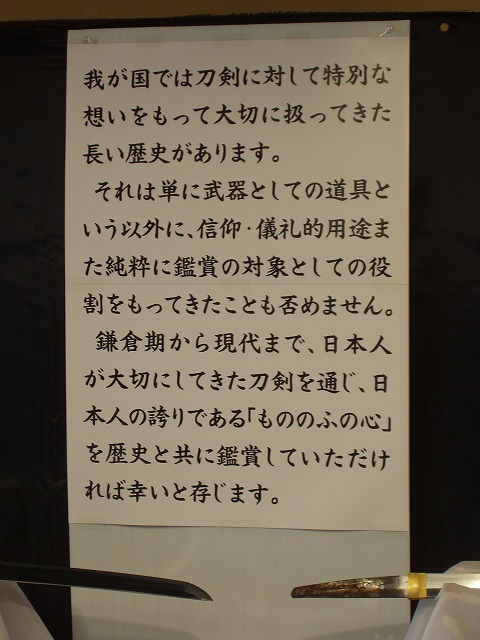 我が国では刀剣に対して特別な
想いをもって大切に扱ってきた
長い歴史があります。
それは単に武器としての道具と
いう以外に、信仰・儀礼的用途ま
た純粋に鑑賞の対象としての役
割をもってきたことも否めません。
鎌倉期から現代まで、日本人
が大切にしてきた刀剣を通じ、日
本人の誇りである「もののふの心」
を歴史と共に鑑賞していただけ
れば幸いと存じます。